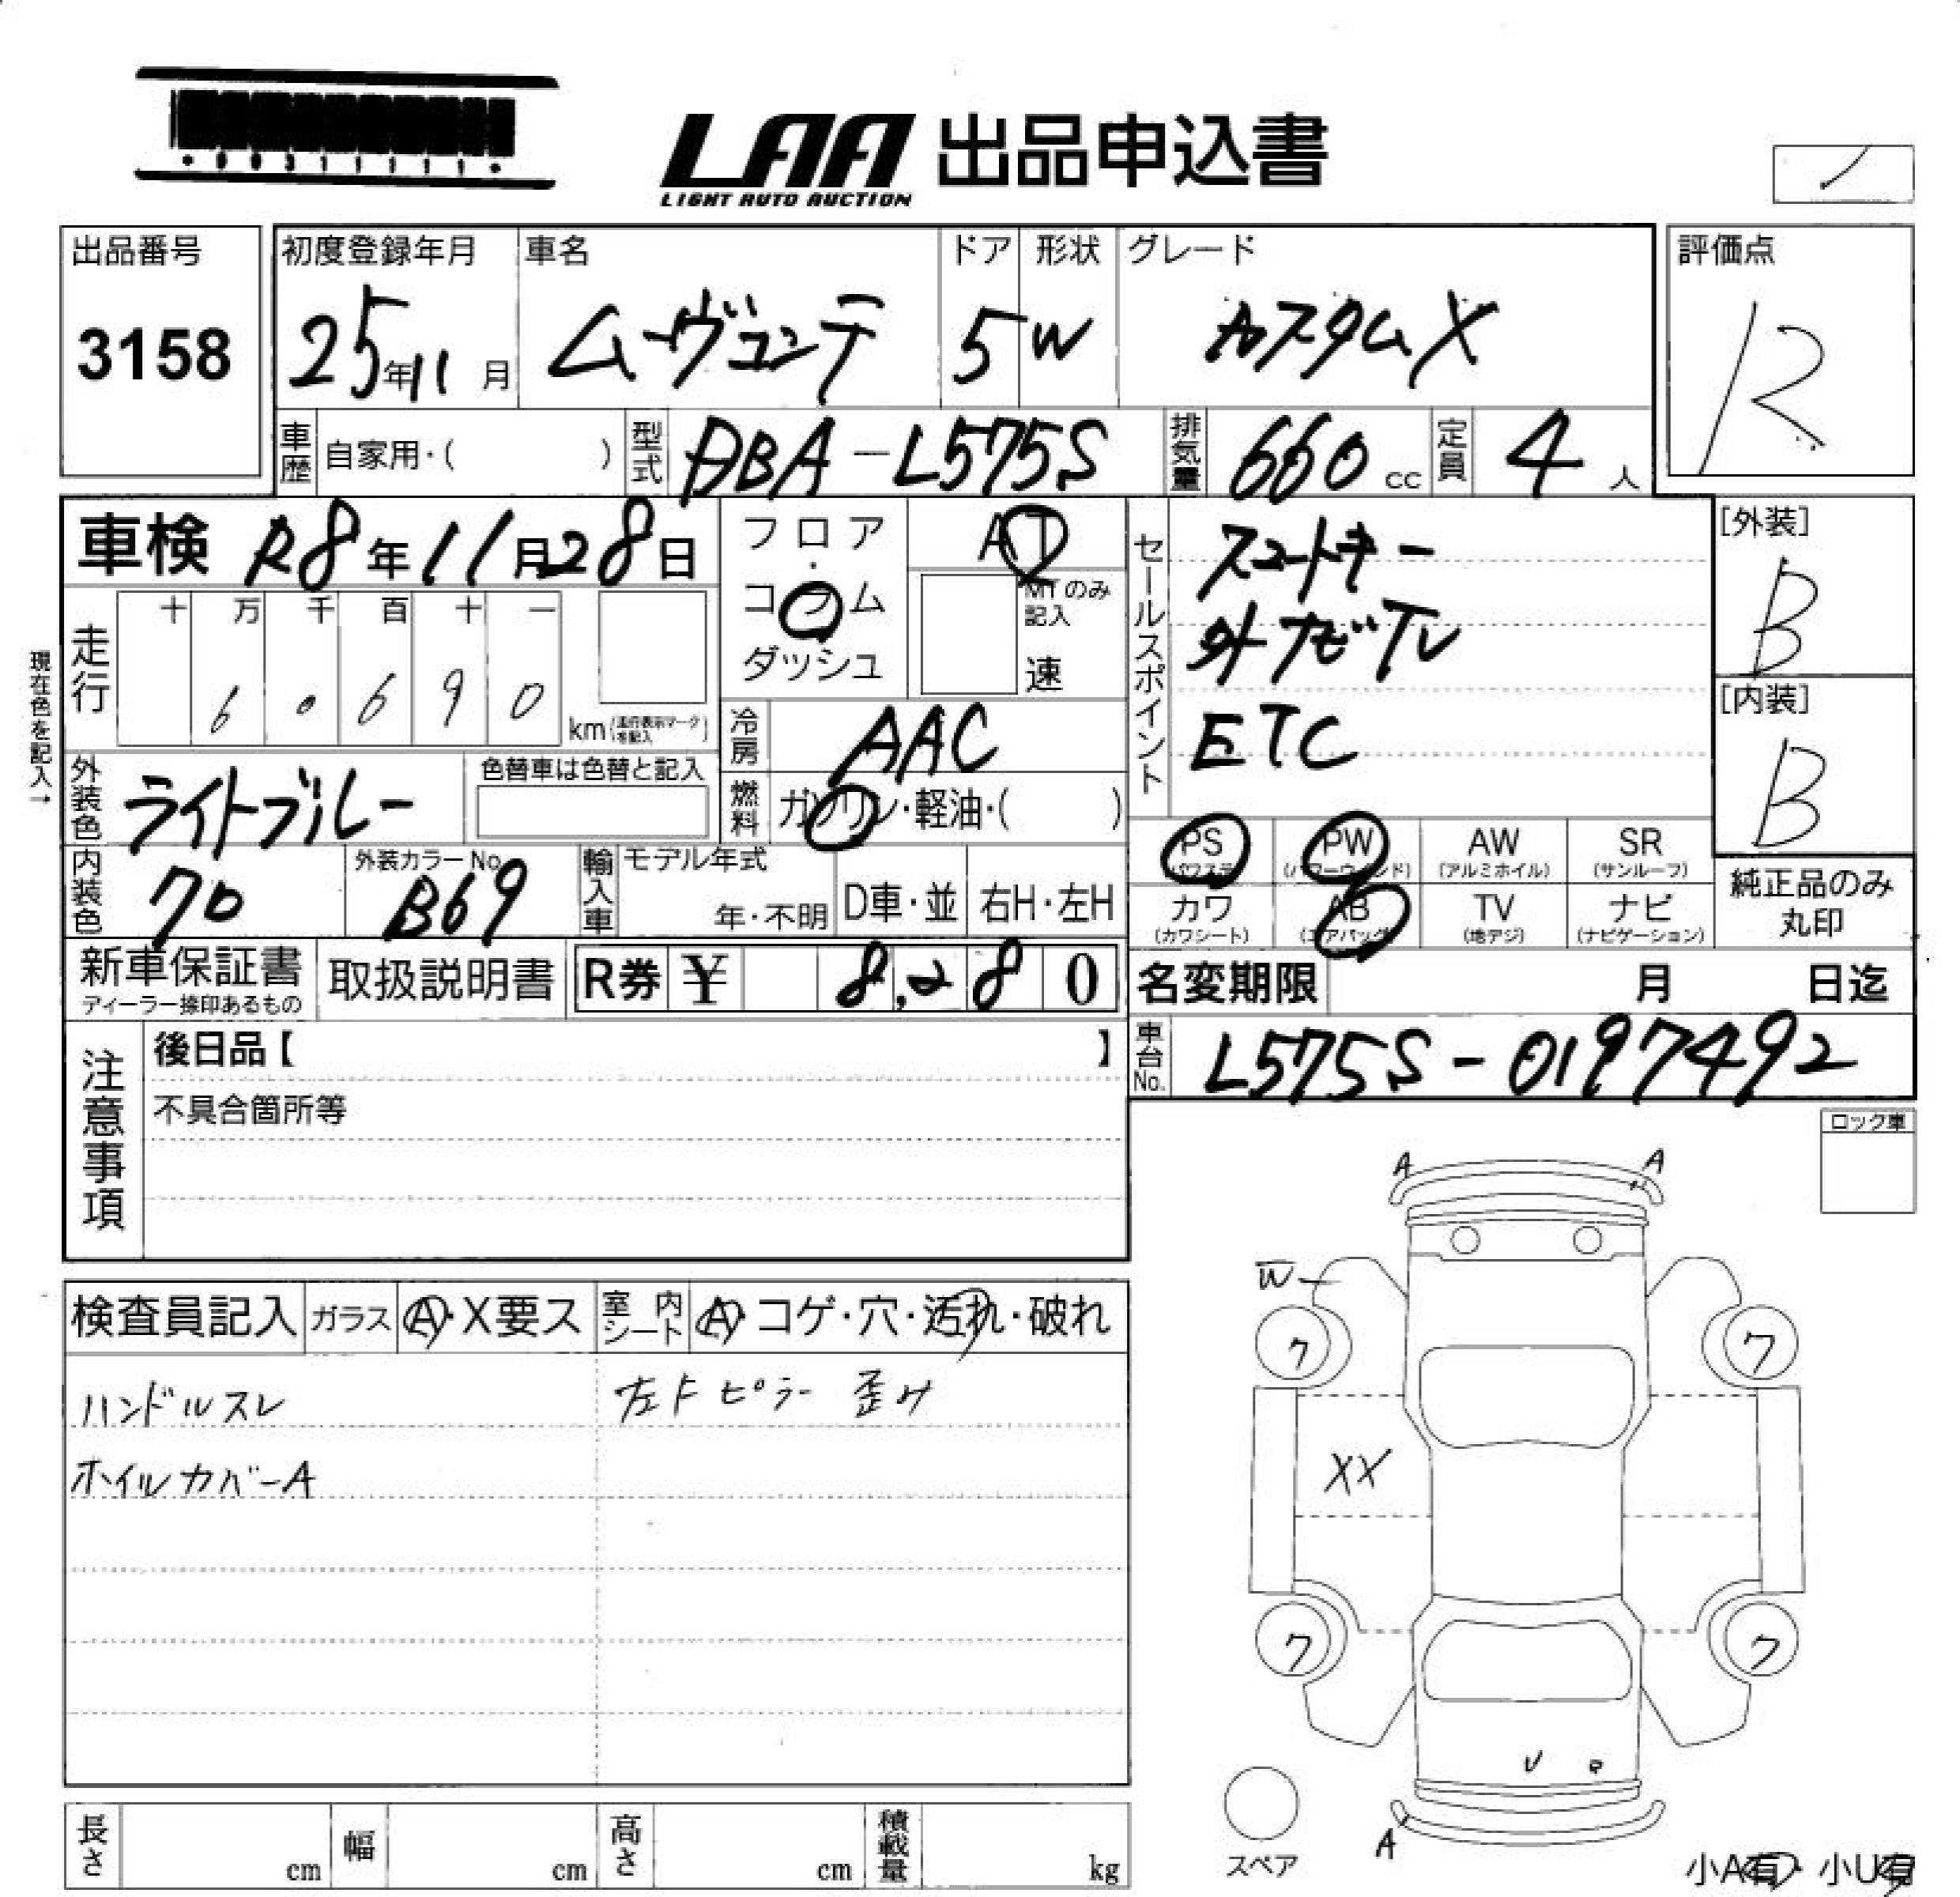 LAA 出品申込書
LIGHT AUTO AUCTION
出品番号
3158
初度登録年月
25年11月
車名
ムーヴコンテ
ドア
5
形状
W
グレード
カスタムX
評価点
R
車歴 自家用・( )
型式 DBA-L575S
排気量 660 cc
定員 4 人
車検 R8年11月28日
フロア・コラム
ダッシュ
AT
MTのみ記入
速
セールスポイント
スマートキー
外ナビTV
ETC
[外装]
B
[内装]
B
現在色を記入→
走行
十 万 千 百 十 一
6 0 6 9 0
km(走行表示マークを記入)
冷房 AAC
燃料 ガソリン・軽油・( )
外装色 ライトブルー
色替車は色替と記入
内装色 クロ
外装カラーNo.
B69
輸入車 モデル年式
年・不明
D車・並
右H・左H
PS
(パワステ)
PW
(パワーウインド)
AW
(アルミホイル)
SR
(サンルーフ)
カワ
(カワシート)
AB
(エアバック)
TV
(地デジ)
ナビ
(ナビゲーション)
純正品のみ
丸印
新車保証書
ディーラー捺印あるもの
取扱説明書
R券 ¥ 8,280
名変期限 月 日迄
車台No. L575S-0197492
注意事項
後日品【 】
不具合箇所等
ロック車
検査員記入
ガラス
A・X要ス
室内シート
A・コゲ・穴・汚れ・破れ
ハンドルスレ
左Fピラー 歪み
ホイルカバーA
A A
W
ク ワ
XX
ク ク
U
A
スペア
小A有・小U有
長さ cm
幅 cm
高さ cm
積載量 kg